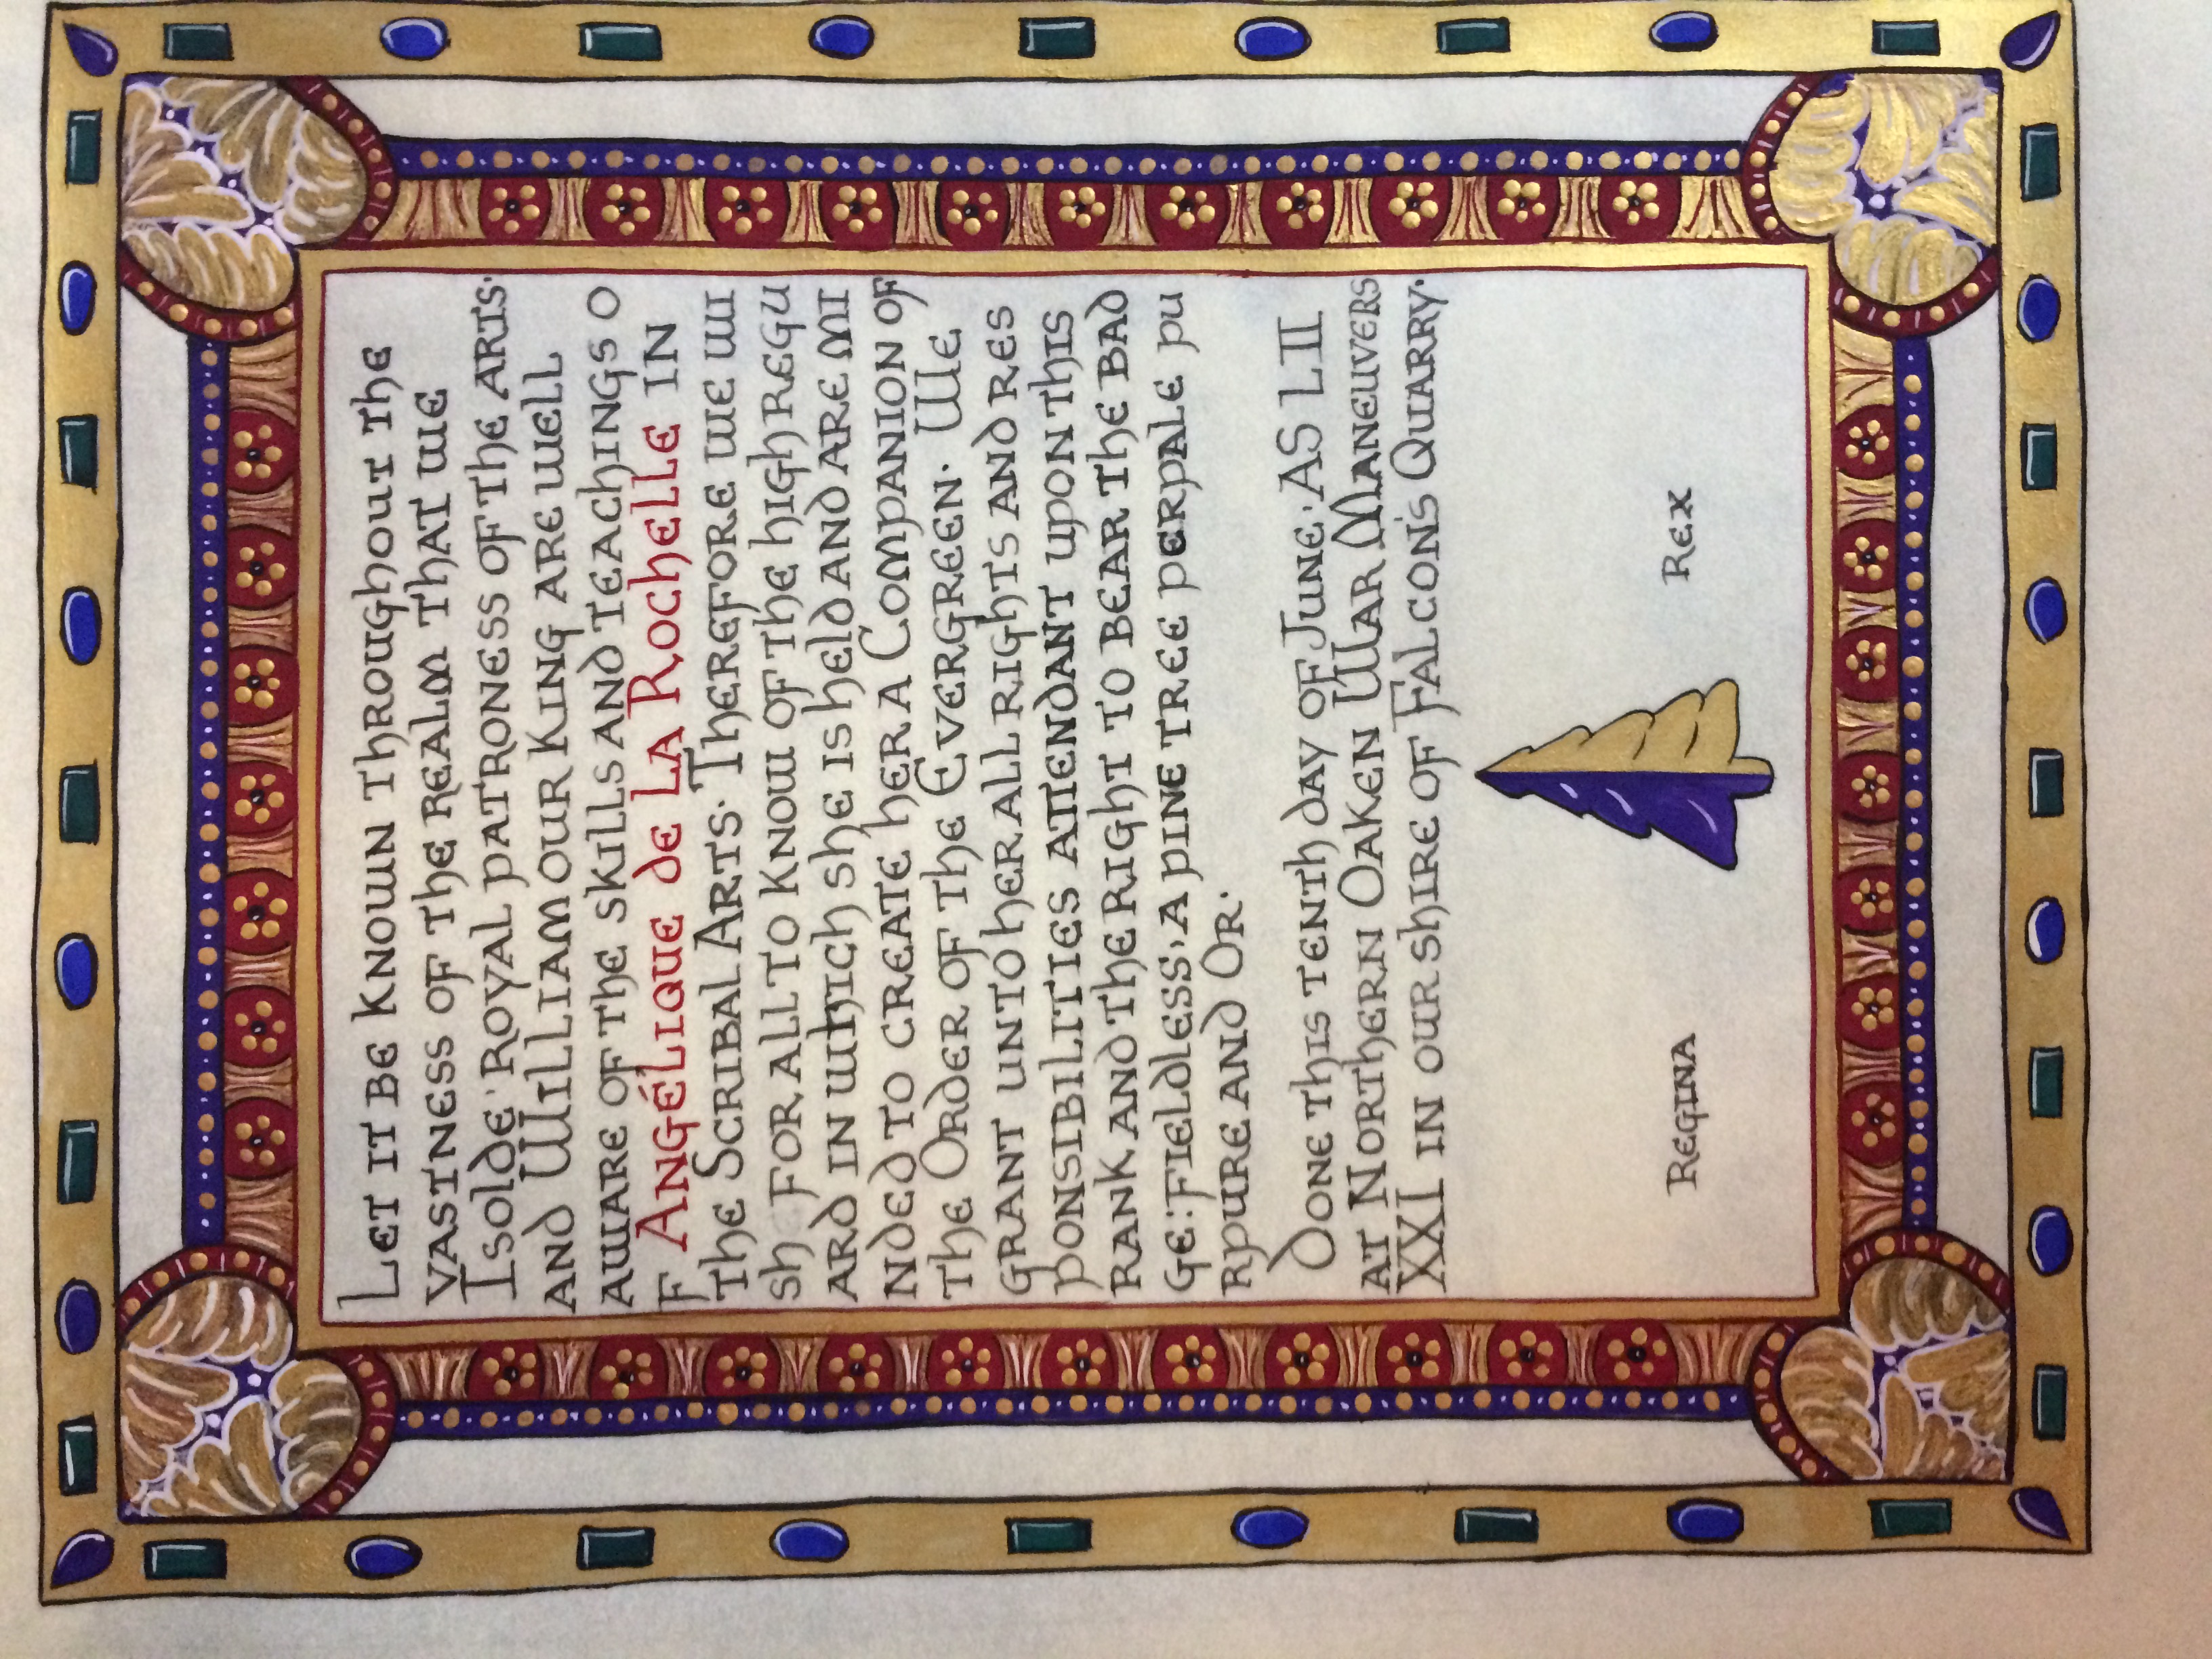 Let it be known throughout the
vastness of the realm that we
Isolde· Royal patroness of the arts·
and William our King are well
aware of the skills and teachings o
f Angélique de La Rochelle in
the Scribal Arts· Therefore we wi
sh for all to know of the high regu
ard in which she is held and are mi
nded to create her a Companion of
the Order of the Evergreen· We
grant unto her all rights and res
ponsibilities attendant upon this
rank and the right to bear the bad
ge:·Fieldless, a pine tree perpale pu
rpure and Or·
Done this tenth day of June· AS LII
at Northern Oaken War Maneuvers
XXI in our shire of Falcon's Quarry·
Regina Rex